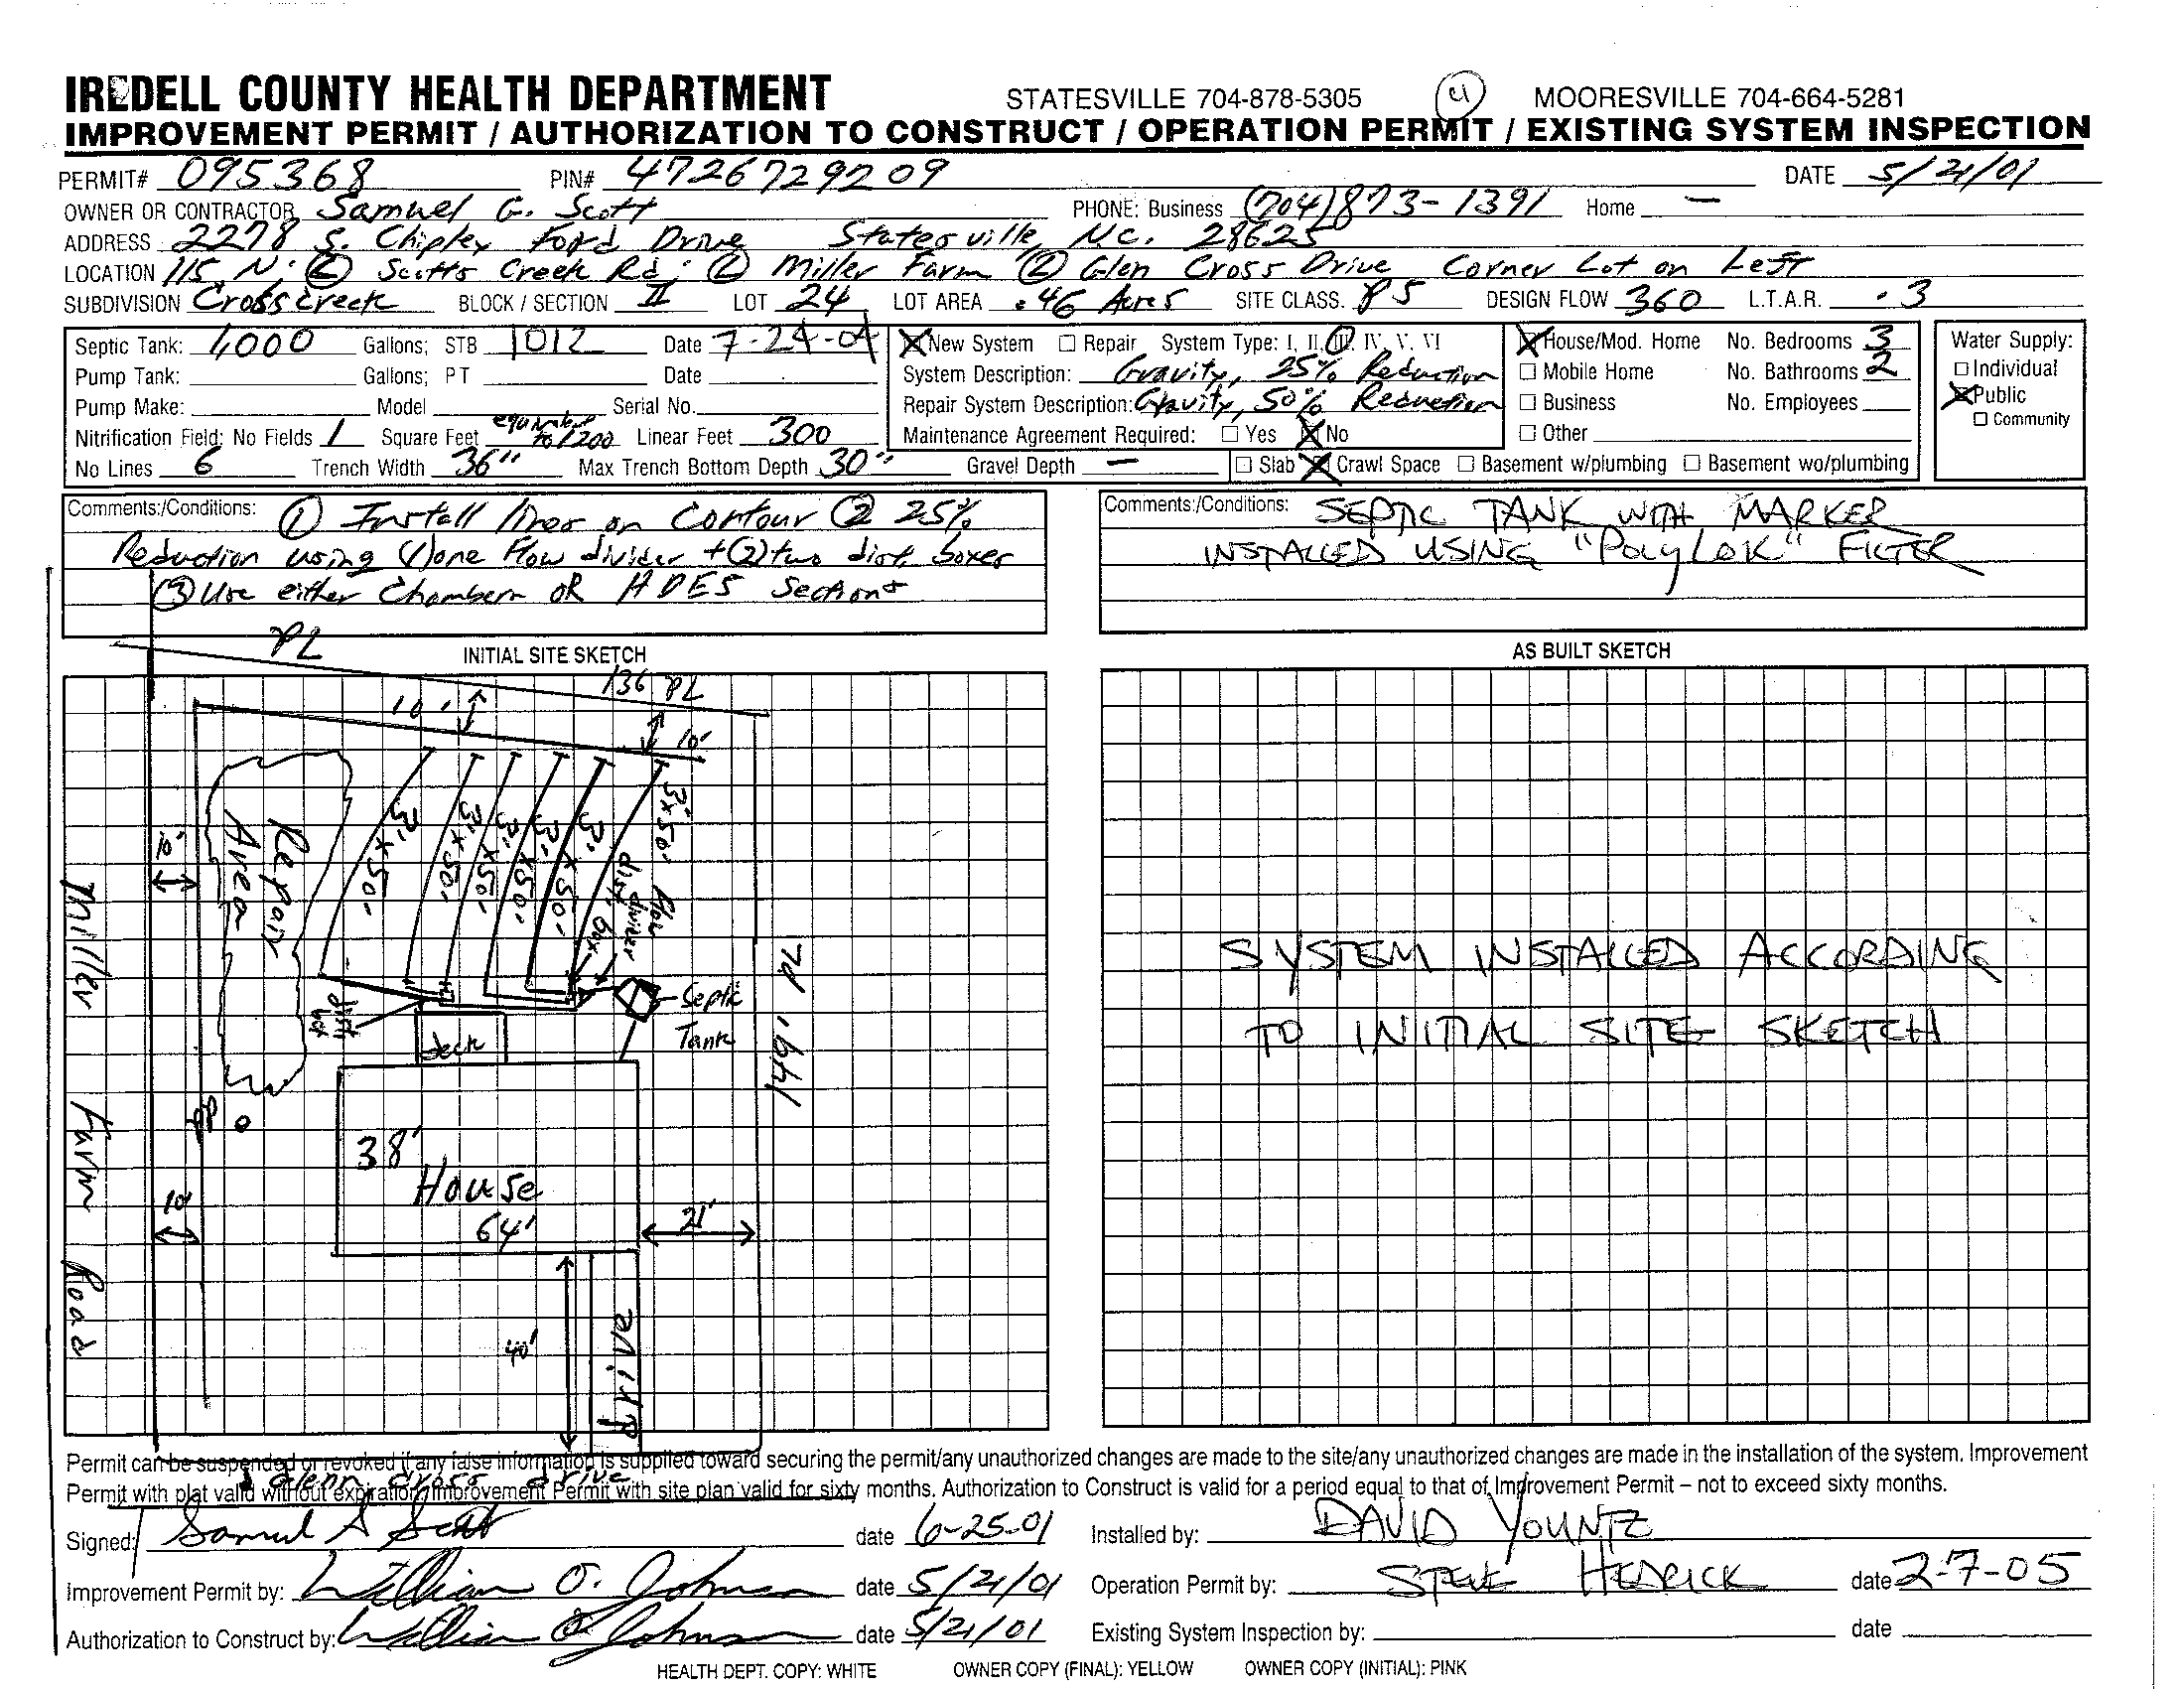 IREDELL COUNTY HEALTH DEPARTMENT STATESVILLE 704-878-5305 MOORESVILLE 704-664-5281
IMPROVEMENT PERMIT / AUTHORIZATION TO CONSTRUCT / OPERATION PERMIT / EXISTING SYSTEM INSPECTION
PERMIT# 095368 PIN# 4726729209 DATE 5/21/01
OWNER OR CONTRACTOR Samuel G. Scott PHONE: Business (704) 873-1391 Home —
ADDRESS 2278 S. Chipley Ford Drive Statesville, N.C. 28625
LOCATION 115 N; (L) Scotts Creek Rd; (L) Miller Farm (L) Glen Cross Drive Corner Lot on Left
SUBDIVISION Cross creek BLOCK / SECTION II LOT 24 LOT AREA .46 Acres SITE CLASS. PS DESIGN FLOW 360 L.T.A.R. .3
Septic Tank: 1,000 Gallons; STB 1012 Date 7-24-04
Pump Tank: Gallons; PT Date
Pump Make: Model Serial No.
Nitrification Field: No Fields 1 Square Feet equivalent to 1200 Linear Feet 300
No Lines 6 Trench Width 36" Max Trench Bottom Depth 30" Gravel Depth —
New System Repair System Type: I, II, III, IV, V, VI
System Description: Gravity, 25% Reduction
Repair System Description: Gravity, 50% Reduction
Maintenance Agreement Required: Yes No
House/Mod. Home No. Bedrooms 3
Mobile Home No. Bathrooms 2
Business No. Employees
Other
Slab Crawl Space Basement w/plumbing Basement wo/plumbing
Water Supply:
Individual
Public
Community
Comments:/Conditions: ① Install lines on Contour ② 25%
Reduction using (1) one Flow divider + (2) two dist. boxes
③ Use either Chambers OR HDES Sections
Comments:/Conditions: SEPTIC TANK WITH MARKER
INSTALLED USING "POLYLOK" FILTER
INITIAL SITE SKETCH
PL
136 PL
10'
10'
3'x50'
3'x50'
3'x50'
3'x50'
3'x50'
3'x50'
Repair
Area
10'
flow divider
dist. box
dist box
Septic
Tank
deck
PL
149'
38'
House
64'
21'
10'
40'
drive
Miller Farm Road
Glenn Cross drive
AS BUILT SKETCH
SYSTEM INSTALLED ACCORDING
TO INITIAL SITE SKETCH
Permit can be suspended or revoked if any false information is supplied toward securing the permit/any unauthorized changes are made to the site/any unauthorized changes are made in the installation of the system. Improvement
Permit with plat valid without expiration/Improvement Permit with site plan valid for sixty months. Authorization to Construct is valid for a period equal to that of Improvement Permit – not to exceed sixty months.
Signed: Samuel G Scott date 6-25-01 Installed by: DAVID YOUNTZ
Improvement Permit by: William O. Johnson date 5/21/01 Operation Permit by: STEVE HEDRICK date 2-7-05
Authorization to Construct by: William O. Johnson date 5/21/01 Existing System Inspection by: date
HEALTH DEPT. COPY: WHITE OWNER COPY (FINAL): YELLOW OWNER COPY (INITIAL): PINK